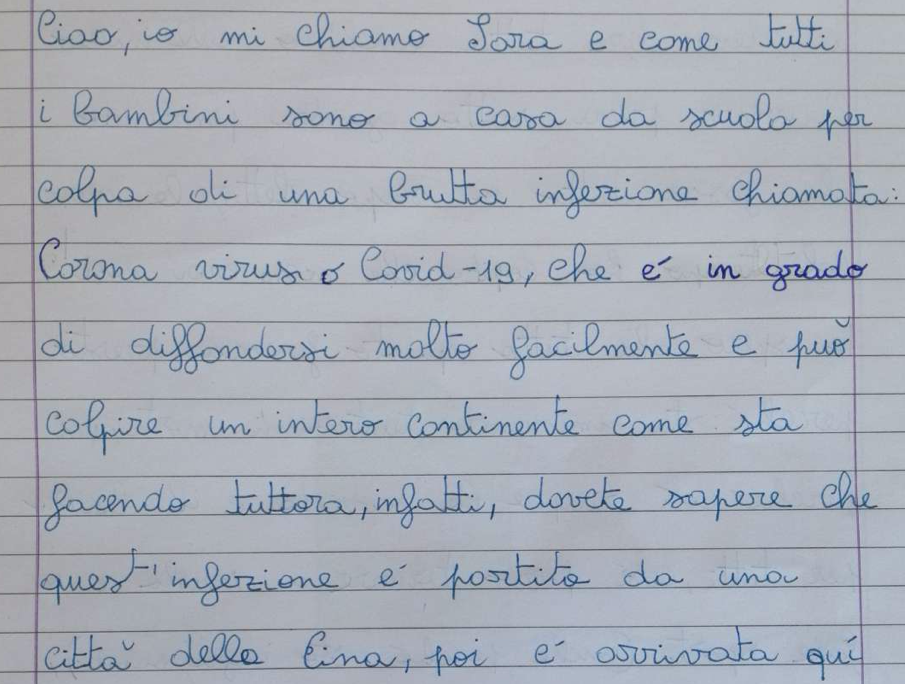 Ciao, io mi chiamo Sara e come tutti
i bambini sono a casa da scuola per
colpa di una brutta infezione chiamata:
Corona virus o Covid-19, che é in grado
di diffondersi molto facilmente e può
colpire un intero continente come sta
facendo tuttora, infatti, dovete sapere che
quest'infezione é partita da una
città della Cina, poi é arrivata quí